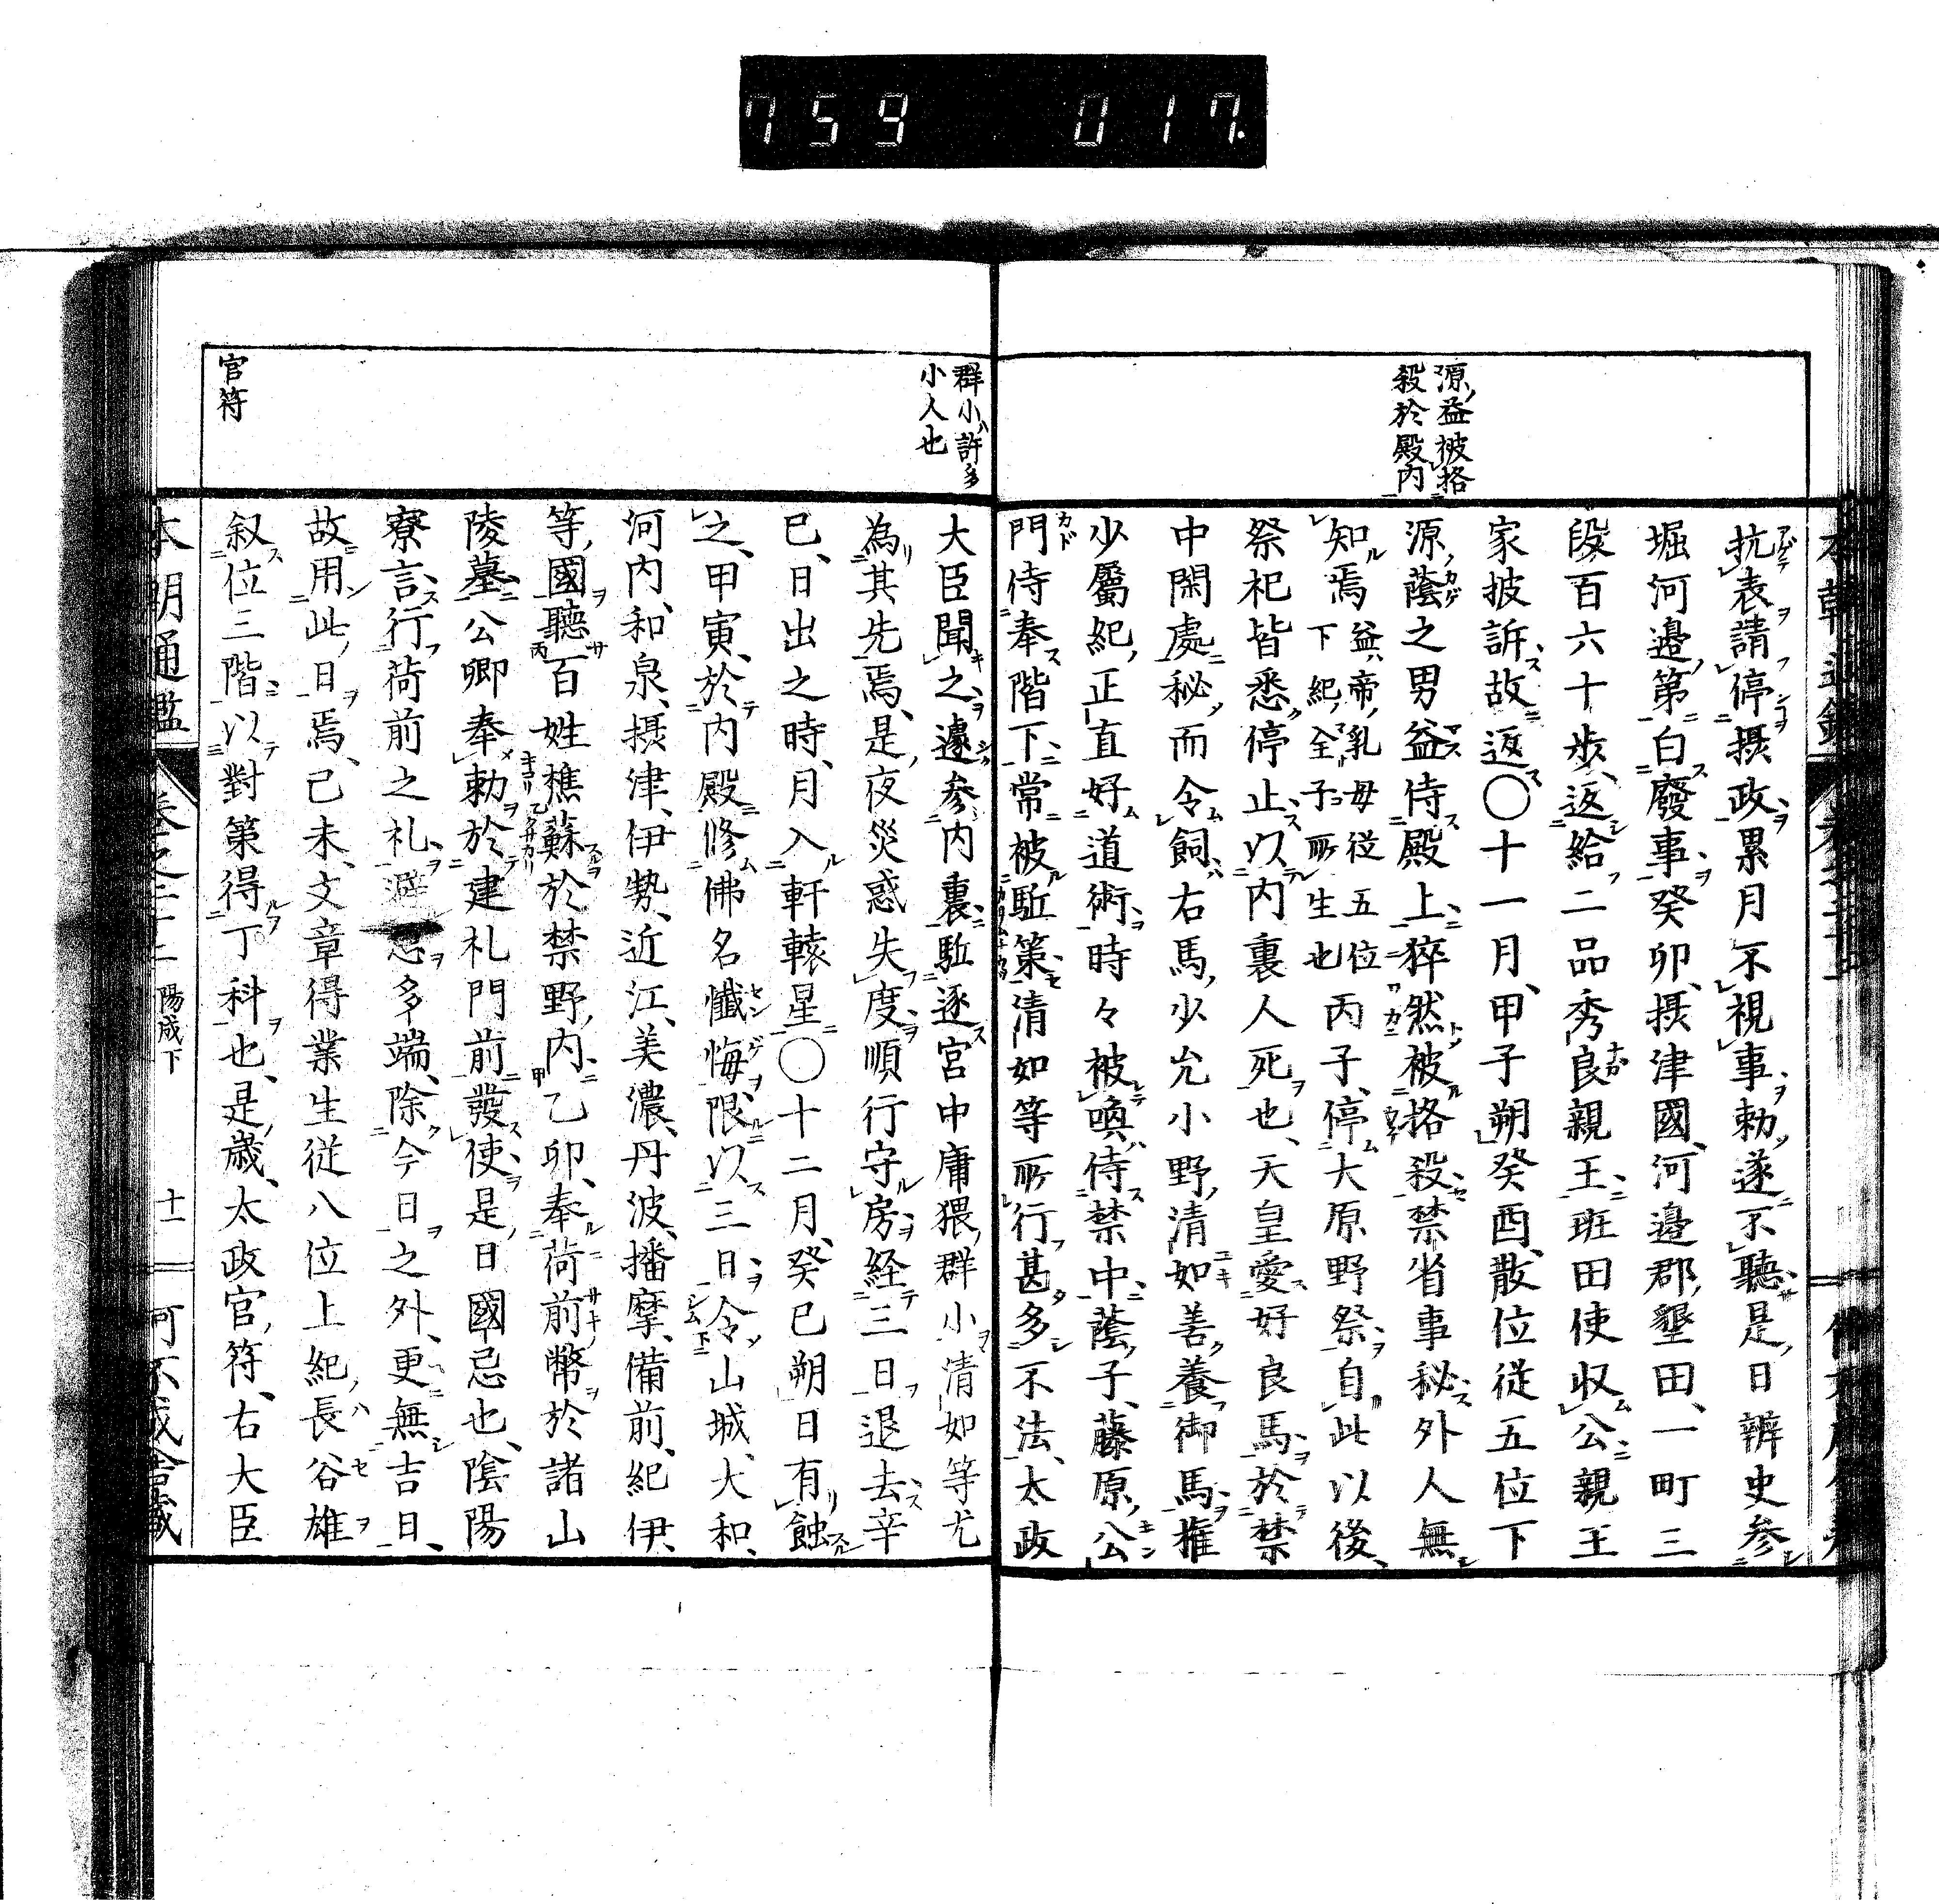 759 017.
源益被格
殺於殿内
抗表請停摂政累月不視事勅遂不聽是日辨史参
堀河邉第白廢事癸卯摂津國河邉郡墾田一町三
段百六十歩返給二品秀良親王班田使収公親王
家披訴故返〇十一月甲子朔癸酉散位従五位下
源蔭之男益侍殿上猝然被格殺禁省事秘外人無
知焉益帝乳母従五位下紀全子所生也丙子停大原野祭自此以後
祭祀皆悉停止以内裏人死也天皇愛好良馬於禁
中閑處秘而令飼右馬少允小野清如善養御馬權
少屬紀正直好道術時々被喚侍禁中蔭子藤原公
門侍奉階下常被駈策清如等所行甚多不法太政
群小許多
小人也
官符
大臣聞之遽参内裏駈逐宮中庸猥群小清如等尤
為其先焉是夜災惑失度順行守房経三日退去辛
巳日出之時月入軒轅星〇十二月癸巳朔日有蝕
之甲寅於内殿修佛名懺悔限以三日令山城大和
河内和泉摂津伊勢近江美濃丹波播摩備前紀伊
等國聽百姓樵蘇於禁野内乙卯奉荷前幣於諸山
陵墓公卿奉勅於建礼門前發使是日國忌也陰陽
寮言行荷前之礼避忌多端除今日之外更無吉日
故用此日焉己未文章得業生従八位上紀長谷雄
叙位三階以對第得丁科也是歳太政官符右大臣
本朝通鑑 巻之二十二 陽成下 十一